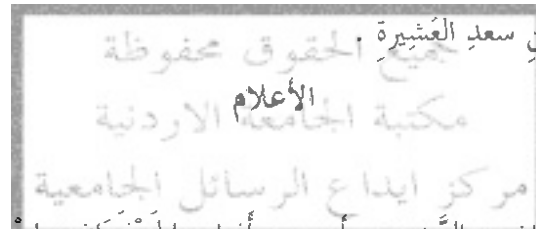 سعدِ العَشِيرةِ .
جميع الحقوق محفوظة
الأعلام
مكتبة الجامعة الاردنية
مركز ايداع الرسائل الجامعية